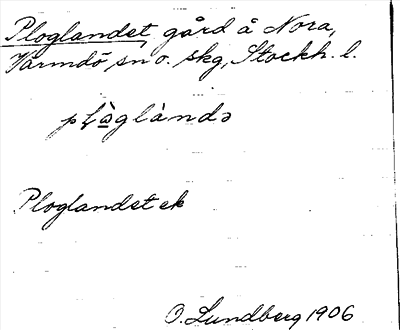 Ploglandet, gård å Nora,
Värmdö, sn o. skg, Stockh. l.
pɭàglàndə
Ploglandet ek
O. Lundberg 1906